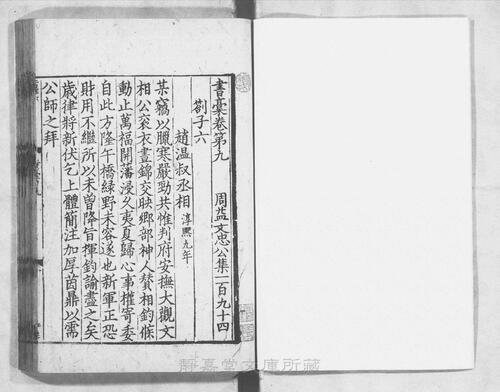 書稾卷第九　周益文忠公集一百九十四
劄子六
趙温叔丞相 淳熙九年
某竊以臘寒嚴勁共惟判府安撫大觀文
相公衮衣晝錦交映鄉部神人賛相鈞候
動止萬福開藩浸久夷夏歸心事權寄委
自此方隆午橋緑野未容遂也新軍正恐
財用不繼所以未曽降旨揮鈞諭盡之矣
歳律將新伏乞上體簡注加厚茵鼎以需
公師之拜
靜嘉堂文庫所藏